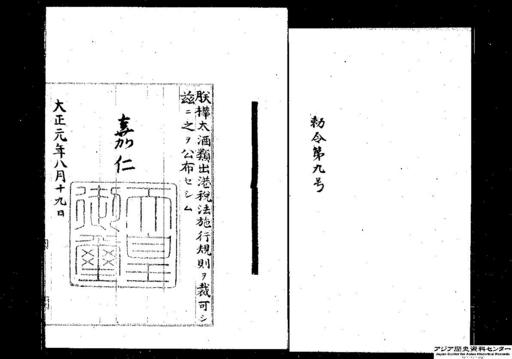 勅令第九号
朕樺太酒類出港税法施行規則ヲ裁可シ
茲ニ之ヲ公布セシム
嘉仁
天皇
御璽
大正元年八月十九日
アジア歴史資料センター
Japan Center for Asian Historical Records